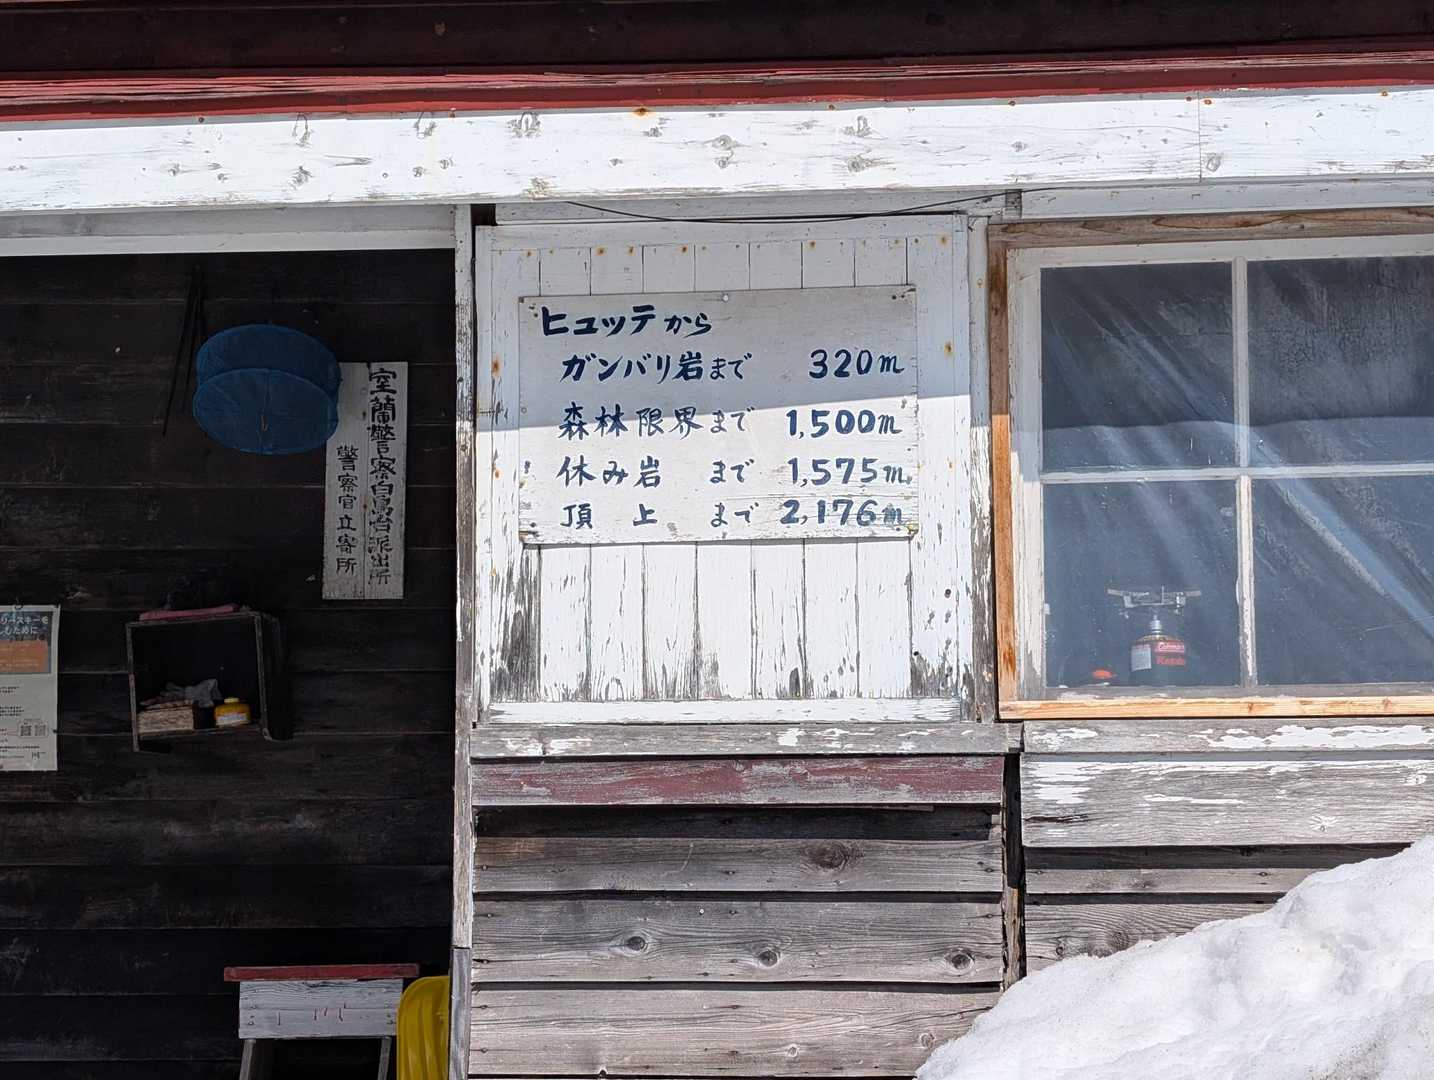 ヒュッテから
ガンバリ岩まで 320m
森林限界まで 1,500m
休み岩 まで 1,575m
頂 上 まで 2,176m
室蘭警察白鳥台派出所
警察官立寄所
Coleman